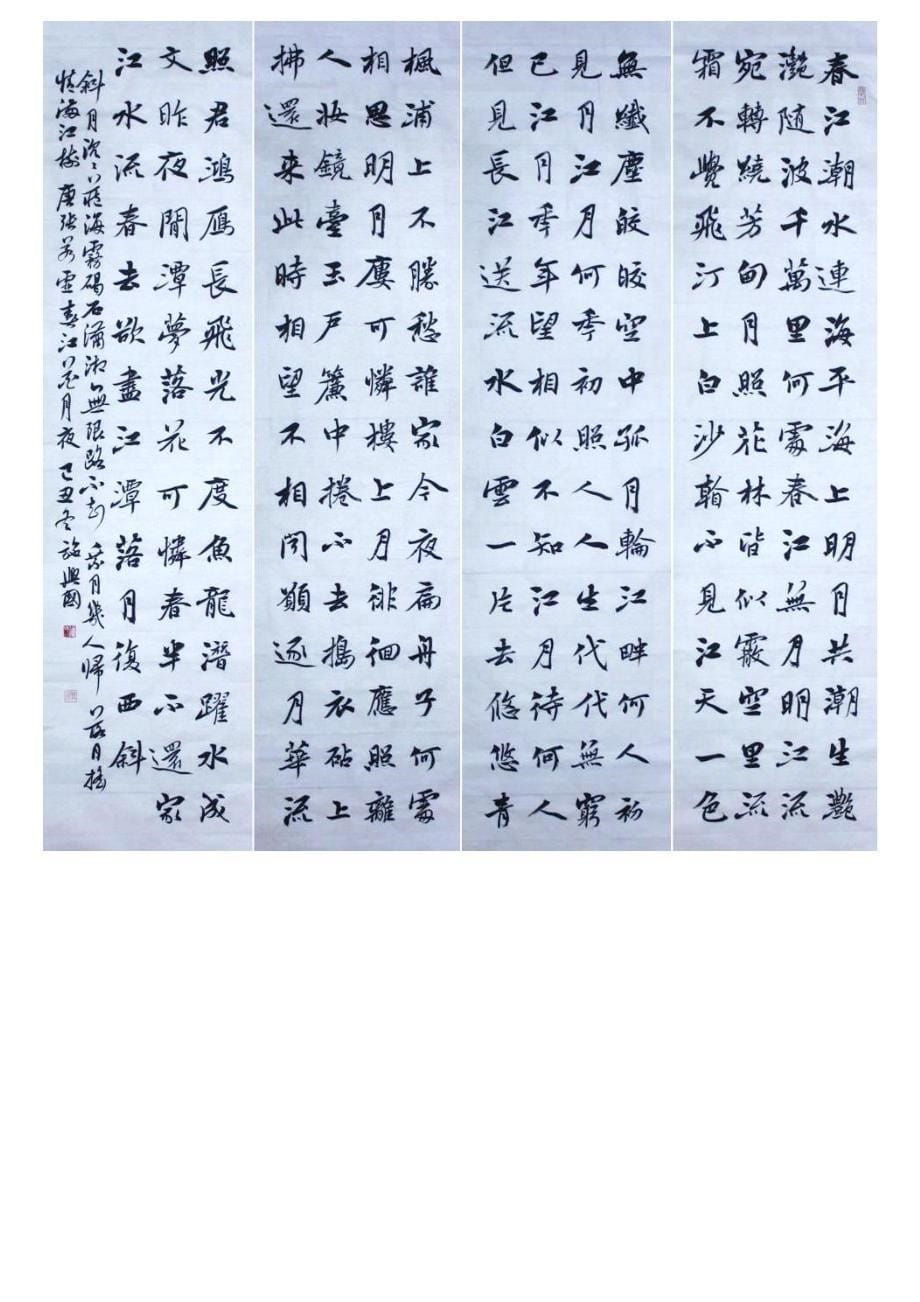 春江潮水連海平海上明月共潮生灩
灩隨波千萬里何處春江無月明江流
宛轉繞芳甸月照花林皆似霰空里流
霜不覺飛汀上白沙看不見江天一色
無纖塵皎皎空中孤月輪江畔何人初
見月江月何年初照人人生代代無窮
已江月年年望相似不知江月待何人
但見長江送流水白雲一片去悠悠青
楓浦上不勝愁誰家今夜扁舟子何處
相思明月樓可憐樓上月徘徊應照離
人妝鏡臺玉戶簾中捲不去搗衣砧上
拂還來此時相望不相聞願逐月華流
照君鴻雁長飛光不度魚龍潛躍水成
文昨夜閒潭夢落花可憐春半不還家
江水流春去欲盡江潭落月復西斜
斜月沈沈藏海霧碣石瀟湘無限路不知乘月幾人歸落月搖
情滿江樹 唐張若虛春江花月夜 己丑冬 興國